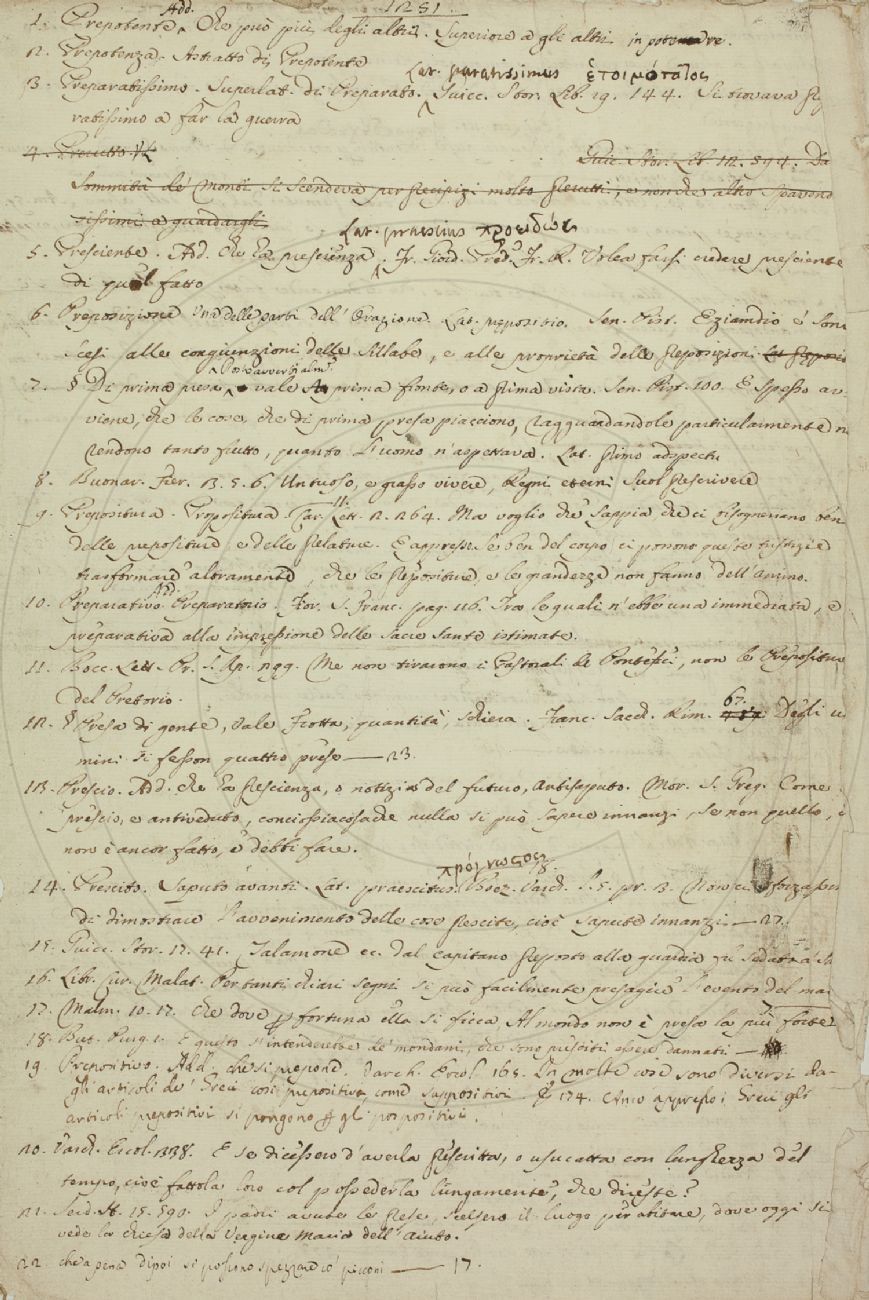 1281.
1. Prepotente. Add. Che può più degli altri. Superiore a gli altri in potere.
2. Prepotenza. Astratto di Prepotente
Lat. paratissimus ἑτοιμότατος
3. Preparatissimo. Superlat. di Preparato. Guicc. Stor. Lib. 19. 144. Si trovava p
ratissimo a far la guerra
4. Guic. Stor. Lib. 12. 594. Da
sommità de' Monti si scendeva per precipizi molto, e non che altro spavento
sissimi a guardargli
Lat. praescius προειδώς
5. Presciente. Add. Che ha prescienza. Fr. Giord. Pred. R. Volea farsi credere presciente
di quel fatto
6. Preposizione Una delle parti dell' Orazione. Lat. prepositio. Sen. Pist. Eziandio è sono
scesi alle congiunzioni delle sillabe, e alle proprietà delle preposizioni
7. § Di prima presa, Posto avverbialm. vale A prima fronte, o a prima vista. Sen. Pist. 100. E spesso av-
viene, che le cose, che di prima presa piacciono, ragguardandole particularmente n
rendono tanto frutto, quanto l'uomo n'aspettava. Lat. primo adspectu
8. Buonar. Fier. 3. 5. 6. Untuoso, e grasso vivere, Regni eterni suol prescrivere
9. Prepositura. Propositura Car. Lett. 2. 264. Ma voglio che sappia che ci bisogneriano ben
delle prepositure, e delle prelature. E appresso: Se ben del corpo ci ponono queste tristizie
trasformare altramente, che le prepositure, e le grandezze non fanno dell'animo.
10. Preparativo. Add. Preparatorio. Fior. S. Franc. pag. 116. Tra le quali n'ebbe una immediata, e
preparativa alla impressione delle sacre sante istimate.
11. Bocc. Lett. Pr. S. Ap. 299. Me non tirarono i Pastorali de' Pontefici, non le Prepositure
del Pretorio.
12. § Presa di gente, vale Frotta, quantità, schiera. Franc. Sacch. Rim. 67. Degli uo
mini si fesson quattro prese — 23.
13. Prescio. Add. Che ha prescienza, o notizia del futuro, Antisaputo. Mor. S. Greg. Come
prescio, e antiveduto, conciossiacosachè nulla si può sapere innanzi, se non quello, c
non è ancor fatto, e debbi fare.
πρόγνωστος
14. Prescito. Saputo avanti. Lat. praescitus. Boez. Varch. l. 5. pr. 3. Non ci sforzassi
di dimostrare l'avvenimento delle cose prescite, cioè sapute innanzi — 27.
15. Guicc. Stor. 17. 41. Salamone ec. dal capitano preposto alla guardia fu sedata a
16. Libr. Cur. Malat. Per tanti chiari segni si può facilmente presagire l'evento del ma
17. Malm. 10. 17. Che dove p fortuna ella si ficca, Al mondo non è presa la più forte
18. But. Purg. 1. E questo s'intenderebbe de' mondani, che sono presciti essere dannati —
19. Prepositivo. Add. che si prepone. Varch. Ercol. 165. In molte cose sono diversi da-
gli articoli de' Greci così prepositivi come suppositivi. E 174. Anco appresso i Greci gli
articoli prepositivi si pongono p gli pospositivi.
20. Varch. Ercol. 338. E se dicessero d'averla prescritta, o usucatta con lunghezza del
tempo, cioè fattola loro col possederla lungamente, che direste?
21. Serd. St. 15. 590. I padri avute le prese, scelsero il luogo per abitare, dove oggi si
vede la chiesa della Vergine Maria dell'Aiuto.
22. che a pena dipoi si possono spezzare co' picconi — 17.